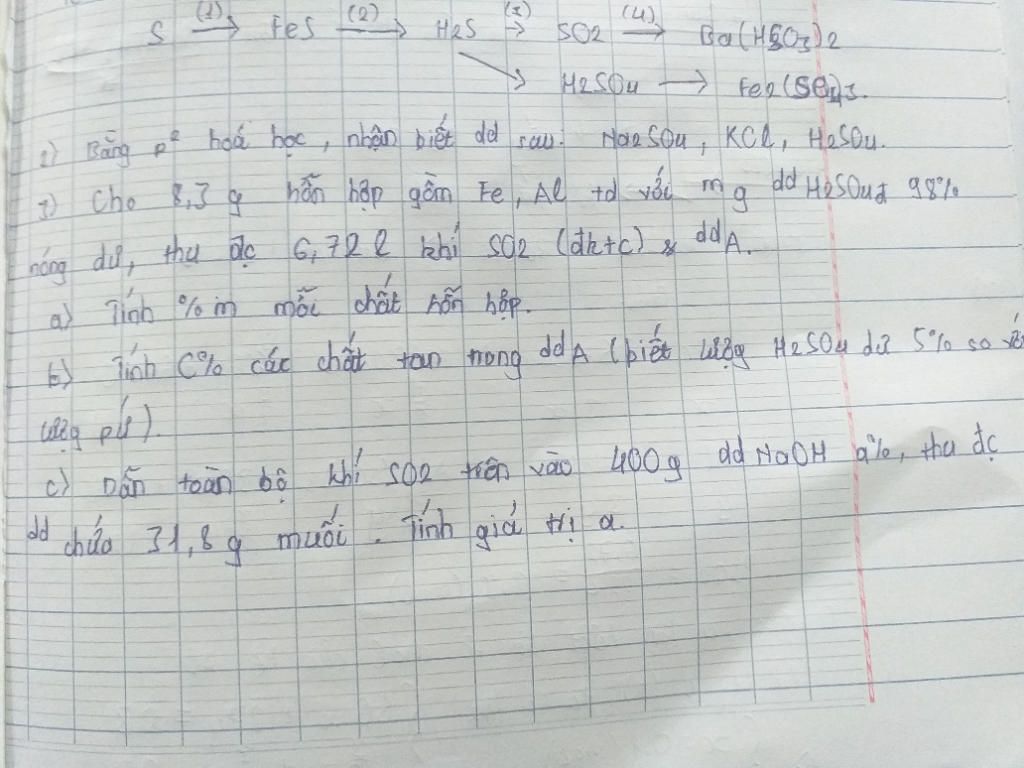 S (1)→ FeS (2)→ H2S (3)→ SO2 (4)→ Ba(HSO3)2
→ H2SO4 → Fe2(SO4)3.
2) Bằng p² hoá học, nhận biết dd sau: Na2SO4, KCl, H2SO4.
3) Cho 8,3 g hỗn hợp gồm Fe, Al td với m g dd H2SO4đ 98%
nóng dư, thu đc 6,72 l khí SO2 (đktc) & dd A.
a) Tính %m mỗi chất hỗn hợp.
b) Tính C% các chất tan trong dd A (biết lượg H2SO4 dư 5% so với
lượg pứ).
c) Dẫn toàn bộ khí SO2 trên vào 400g dd NaOH a%, thu đc
dd chứa 31,8 g muối. Tính giá trị a.